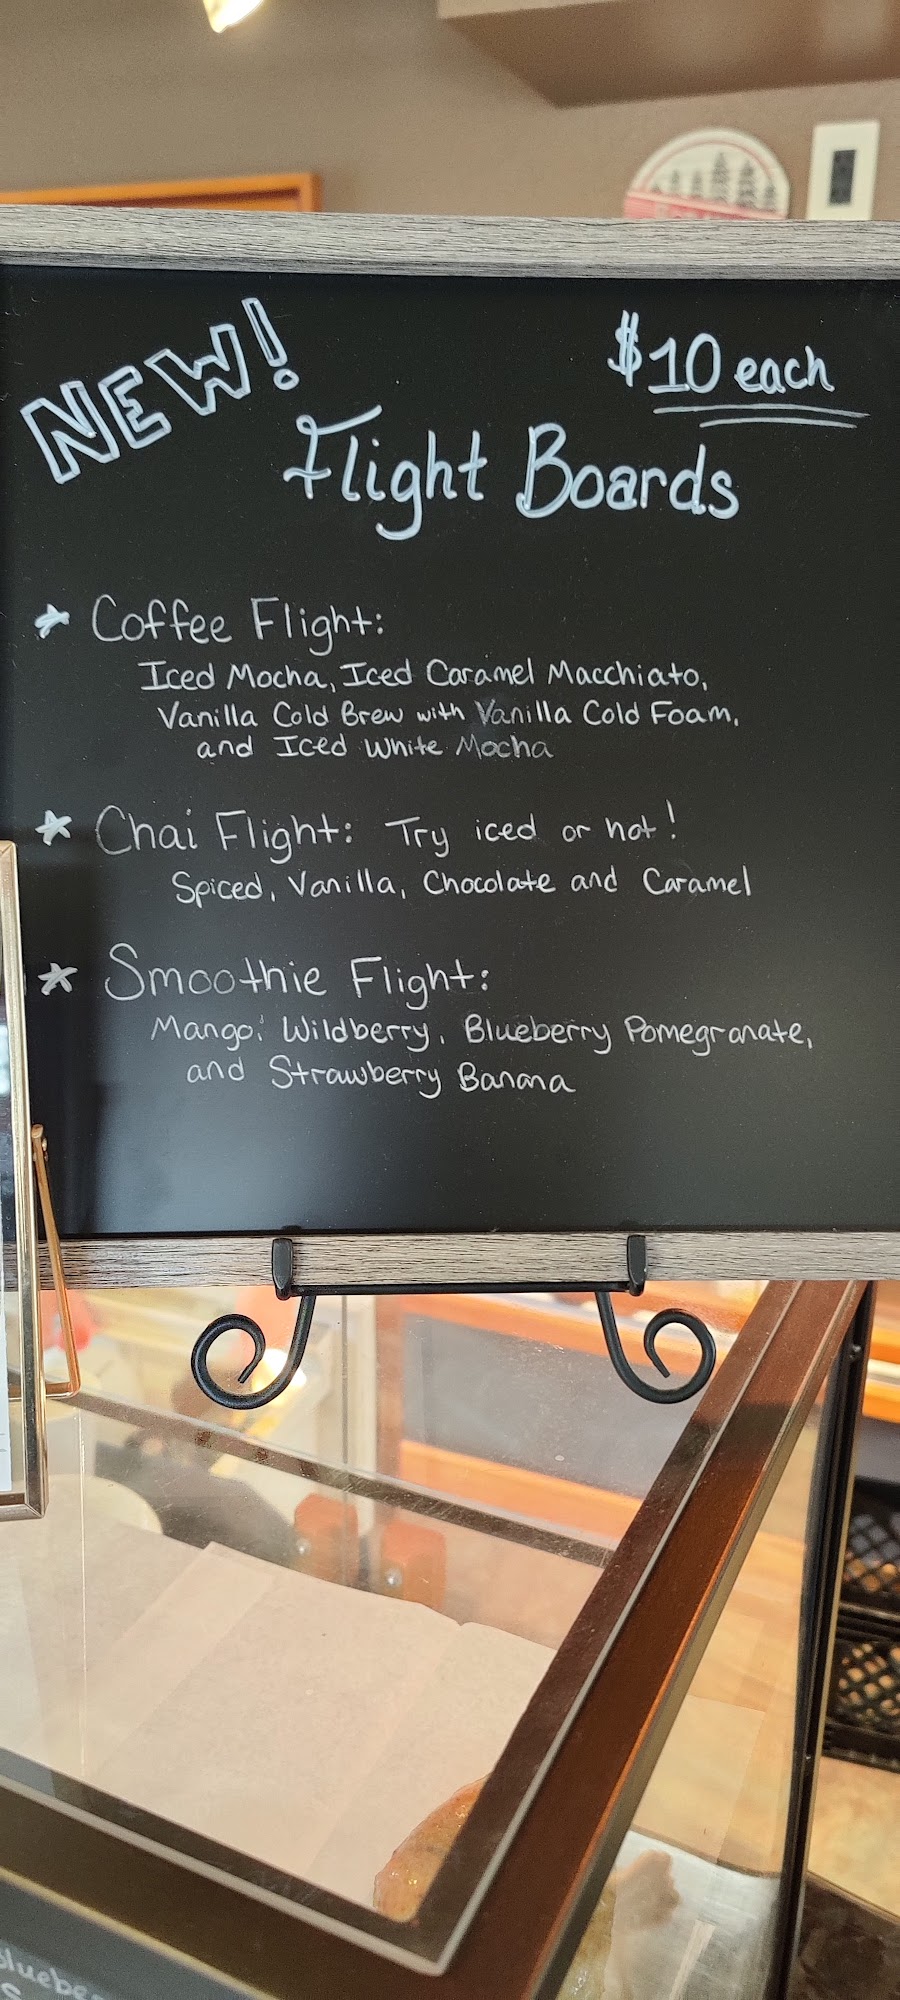 NEW!
$10 each
Flight Boards
Coffee Flight:
Iced Mocha, Iced Caramel Macchiato,
Vanilla Cold Brew with Vanilla Cold Foam,
and Iced White Mocha
Chai Flight: Try iced or hot!
Spiced, Vanilla, Chocolate and Caramel
Smoothie Flight:
Mango, Wildberry, Blueberry Pomegranate,
and Strawberry Banana